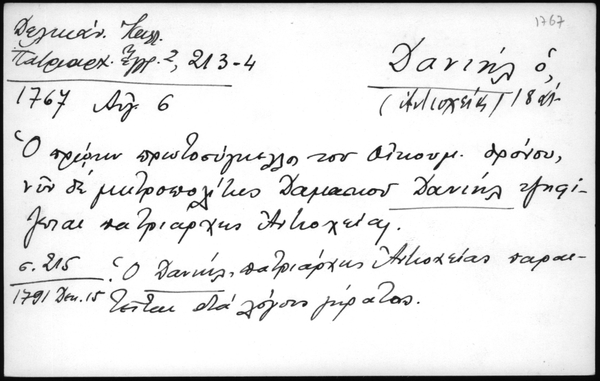 1767
Δελικάν. Καλλ.
Πατριαρχ. Ἔγγρ. 2, 213-4
Δανιήλ ὁ,
(Ἀντιοχείας) 18 αἰ.
1767 Αὐγ. 6
Ὁ πρώην πρωτοσύγκελλος τοῦ Οἰκουμ. θρόνου,
νῦν δέ μητροπολίτης Δαμασκοῦ Δανιήλ ψηφί-
ζεται πατριάρχης Ἀντιοχείας.
σ. 215
1791 Δεκ. 15
: Ὁ Δανιήλ, πατριάρχης Ἀντιοχείας παραι-
τεῖται διά λόγους γήρατος.